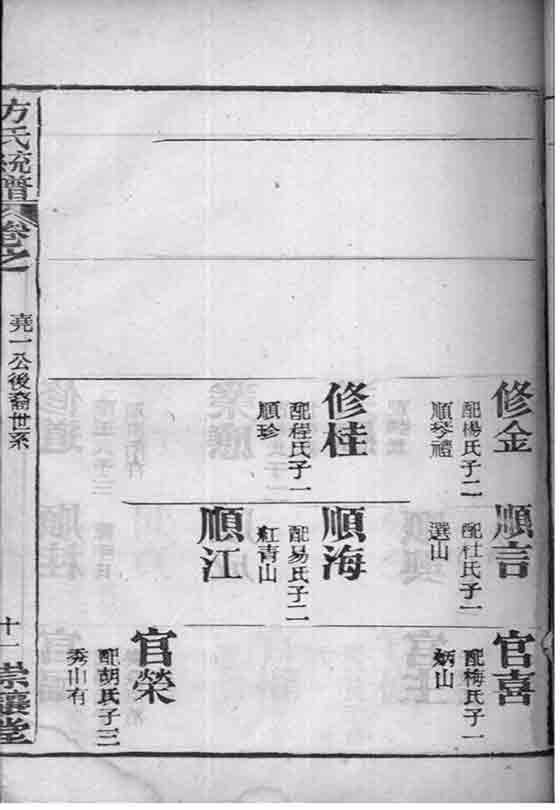 修金
配楊氏子二
順琴禮
修桂
配程氏子一
順珍
順言
配杜氏子一
選山
順海
配易氏子二
紅青山
順江
官喜
配梅氏子一
炳山
官榮
配胡氏子三
秀山有
方氏統譜
卷之
堯一公後裔世系
十一
堂